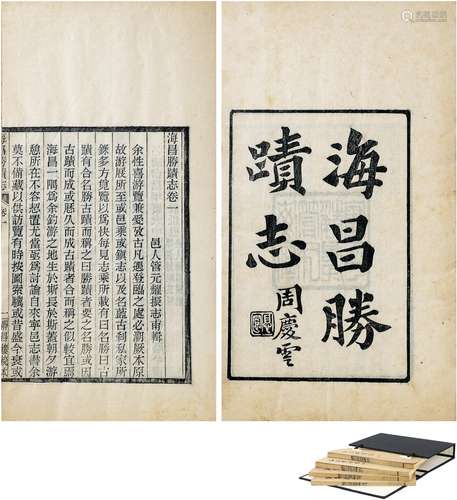 海昌勝
蹟志
周慶雲
海昌勝蹟志卷一
邑人管元耀振志甫輯
余性喜游覽兼愛攷古凡遇登臨之處必溯厥本原
故游展所至或邑乘或鎭志以及名藍古刹私家所
錄多方覽以爲快每見志乘所載有曰名勝曰古
蹟有合名勝古蹟而稱之曰勝蹟者要之名勝或因
古蹟而成或歷久而成古蹟者合而稱之似較宜焉
海昌一隅爲余釣游之地生於斯長於斯蓋朝夕游
憩所在不容恝置尤當亟爲討論自來寧邑志書余
莫不備藏以供訪覽有時按圖索驥或昔盛今衰或
海昌勝蹟志 卷一